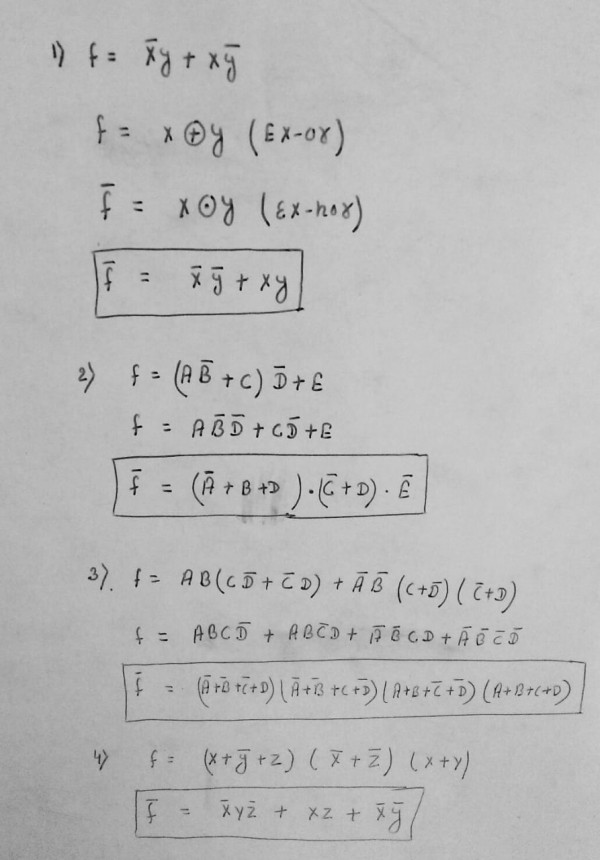 1) f = x̄y + xȳ
f = x⊕y (Ex-or)
f̄ = x⊙y (Ex-nor)
f̄ = x̄ȳ + xy
2) f = (AB̄ + C) D̄ + E
f = AB̄D̄ + CD̄ + E
f̄ = (Ā + B + D) · (C̄ + D) · Ē
3). f = AB(CD̄ + C̄D) + ĀB̄ (C+D̄) (C̄+D)
f = ABCD̄ + ABC̄D + ĀB̄CD + ĀB̄C̄D̄
f̄ = (Ā+B̄+C̄+D) (Ā+B̄+C+D̄) (A+B+C̄+D̄) (A+B+C+D)
4) f = (x+ȳ+z) (x̄+z̄) (x+y)
f̄ = x̄yz̄ + xz + x̄ȳ